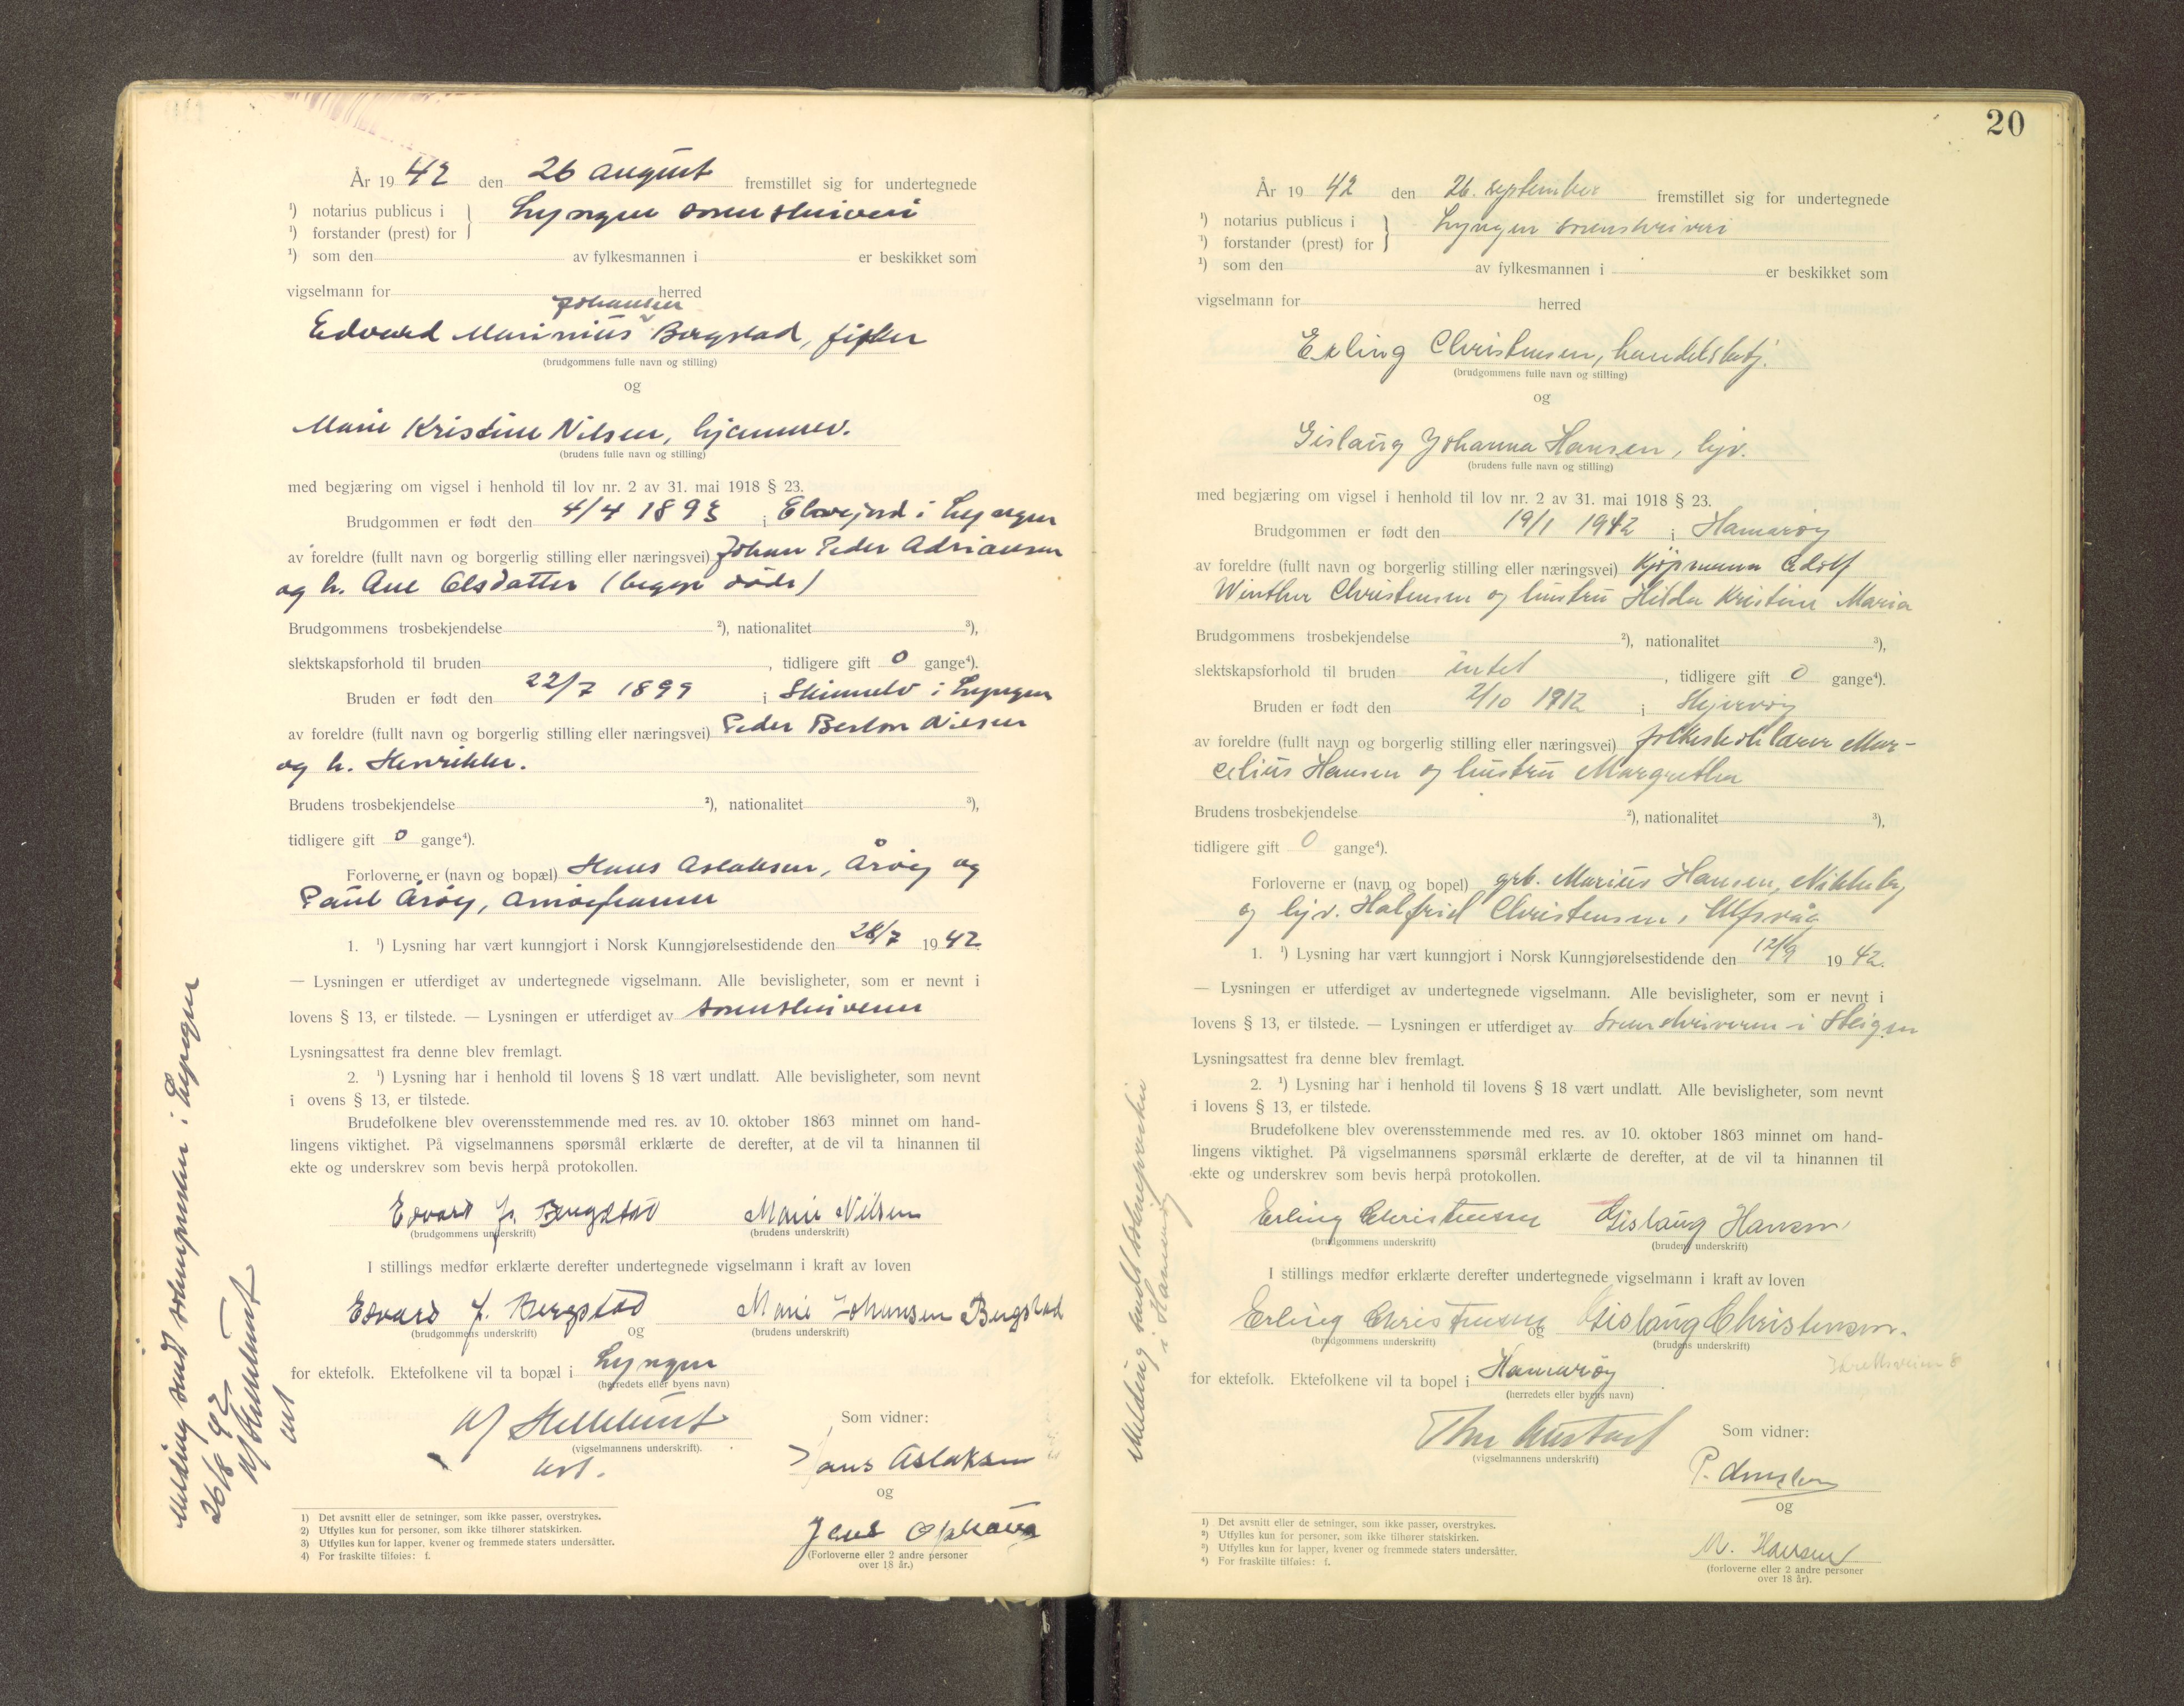 År 19 42 den 26 august fremstillet sig for undertegnede
¹) notarius publicus i } Lyngen sorenskriveri
¹) forstander (prest) for
¹) som den av fylkesmannen i er beskikket som
vigselmann for herred
Johansen
Edvard Marinius Bergstad, fisker
(brudgommens fulle navn og stilling)
og
Marie Kristine Nilsen, hjemmev.
(brudens fulle navn og stilling)
med begjæring om vigsel i henhold til lov nr. 2 av 31. mai 1918 § 23.
Brudgommen er født den 4/4 1893 i Elvejord i Lyngen
av foreldre (fullt navn og borgerlig stilling eller næringsvei) Johan Peder Adriansen
og h. Ane Olsdatter (begge døde)
Brudgommens trosbekjendelse ²), nationalitet ³),
slektskapsforhold til bruden , tidligere gift 0 gange⁴).
Bruden er født den 22/7 1899 i Skinnelv i Lyngen
av foreldre (fullt navn og borgerlig stilling eller næringsvei) Peder Nilsen
og h. Henrikke.
Brudens trosbekjendelse ²), nationalitet ³),
tidligere gift 0 gange⁴).
Forloverne er (navn og bopæl) Hans Aslaksen, Årøy og
Paul Årøy,
1. ¹) Lysning har vært kunngjort i Norsk Kunngjørelsestidende den 28/7 1942.
— Lysningen er utferdiget av undertegnede vigselmann. Alle bevisligheter, som er nevnt i
lovens § 13, er tilstede. — Lysningen er utferdiget av sorenskriveren
Lysningsattest fra denne blev fremlagt.
2. ¹) Lysning har i henhold til lovens § 18 vært undlatt. Alle bevisligheter, som nevnt
i ovens § 13, er tilstede.
Brudefolkene blev overensstemmende med res. av 10. oktober 1863 minnet om hand-
lingens viktighet. På vigselmannens spørsmål erklærte de derefter, at de vil ta hinannen til
ekte og underskrev som bevis herpå protokollen.
Edvard J. Bergstad Marie Nilsen
(brudgommens underskrift) (brudens underskrift)
I stillings medfør erklærte derefter undertegnede vigselmann i kraft av loven
Edvard J. Bergstad og Marie Johansen Bergstad
(brudgommens underskrift) (brudens underskrift)
for ektefolk. Ektefolkene vil ta bopæl i Lyngen
(herredets eller byens navn)
Som vidner:
(vigselmannens underskrift).
Hans Aslaksen
og
Jens
(Forloverne eller 2 andre personer
over 18 år.)
1) Det avsnitt eller de setninger, som ikke passer, overstrykes.
2) Utfylles kun for personer, som ikke tilhører statskirken.
3) Utfylles kun for lapper, kvener og fremmede staters undersåtter.
4) For fraskilte tilføies: f.
Melding sendt soknepresten i Lyngen
26/8 42
20
År 19 42 den 26. september fremstillet sig for undertegnede
¹) notarius publicus i } Lyngen sorenskriveri
¹) forstander (prest) for
¹) som den av fylkesmannen i er beskikket som
vigselmann for herred
Erling Christensen, handelsbetj.
(brudgommens fulle navn og stilling)
og
Gislaug Johanna Hansen, hjv.
(brudens fulle navn og stilling)
med begjæring om vigsel i henhold til lov nr. 2 av 31. mai 1918 § 23.
Brudgommen er født den 19/1 1942 i Hamarøy
av foreldre (fullt navn og borgerlig stilling eller næringsvei) Kjøpmann Edolf
Winther Christensen og hustru Hilda Kristine Maria
Brudgommens trosbekjendelse ²), nationalitet ³),
slektskapsforhold til bruden intet , tidligere gift 0 gange⁴).
Bruden er født den 2/10 1912 i Skjervøy
av foreldre (fullt navn og borgerlig stilling eller næringsvei) folkeskolelærer Mar-
celius Hansen og hustru Margrethe
Brudens trosbekjendelse ²), nationalitet ³),
tidligere gift 0 gange⁴).
Forloverne er (navn og bopel) grb. Marius Hansen, Nikkeby
og hjv. Halfrid Christensen, Ulfsvåg
1. ¹) Lysning har vært kunngjort i Norsk Kunngjørelsestidende den 12/9 1942.
— Lysningen er utferdiget av undertegnede vigselmann. Alle bevisligheter, som er nevnt i
lovens § 13, er tilstede. — Lysningen er utferdiget av Sorenskriveren i Steigen
Lysningsattest fra denne blev fremlagt.
2. ¹) Lysning har i henhold til lovens § 18 vært undlatt. Alle bevisligheter, som nevnt
i lovens § 13, er tilstede.
Brudefolkene blev overensstemmende med res. av 10. oktober 1863 minnet om hand-
lingens viktighet. På vigselmannens spørsmål erklærte de derefter, at de vil ta hinannen til
ekte og underskrev som bevis herpå protokollen.
Erling Christensen Gislaug Hansen
(brudgommens underskrift) (brudens underskrift)
I stillings medfør erklærte derefter undertegnede vigselmann i kraft av loven
Erling Christensen og Gislaug Christensen.
(brudgommens underskrift) (brudens underskrift)
for ektefolk. Ektefolkene vil ta bopel i Hamarøy
(herredets eller byens navn)
Som vidner:
(vigselmannens underskrift)
og
M. Hansen
(forloverne eller 2 andre personer
over 18 år).
¹) Det avsnitt eller de setninger, som ikke passer, overstrykes.
²) Utfylles kun for personer, som ikke tilhører statskirken.
³) Utfylles kun for lapper, kvener og fremmede staters undersåtter.
⁴) For fraskilte tilføies: f.
Melding sendt soknepresten
i Hamarøy